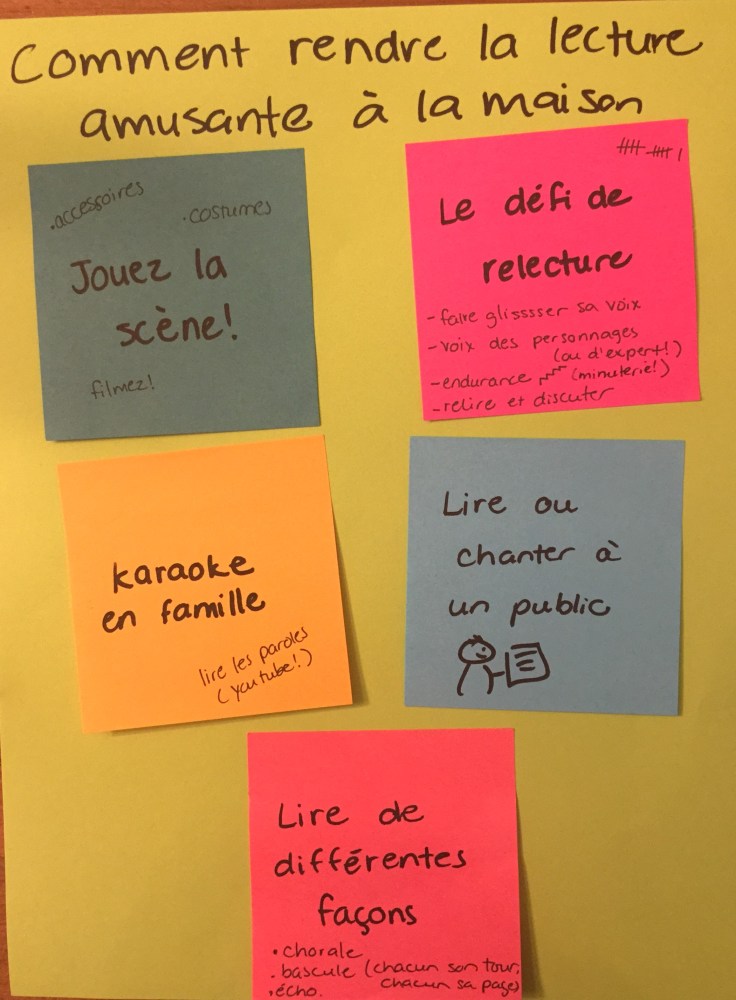 Comment rendre la lecture
amusante à la maison
.accessoires
.costumes
Jouez la
scène!
filmez!
Le défi de
relecture
-faire glisssser sa voix
-voix des personnages
(ou d'expert!)
-endurance (minuterie!)
-relire et discuter
karaoke
en famille
lire les paroles
(youtube!)
Lire ou
chanter à
un public
Lire de
différentes
façons
•chorale
.bascule (chacun son tour,
chacun sa page)
.écho.